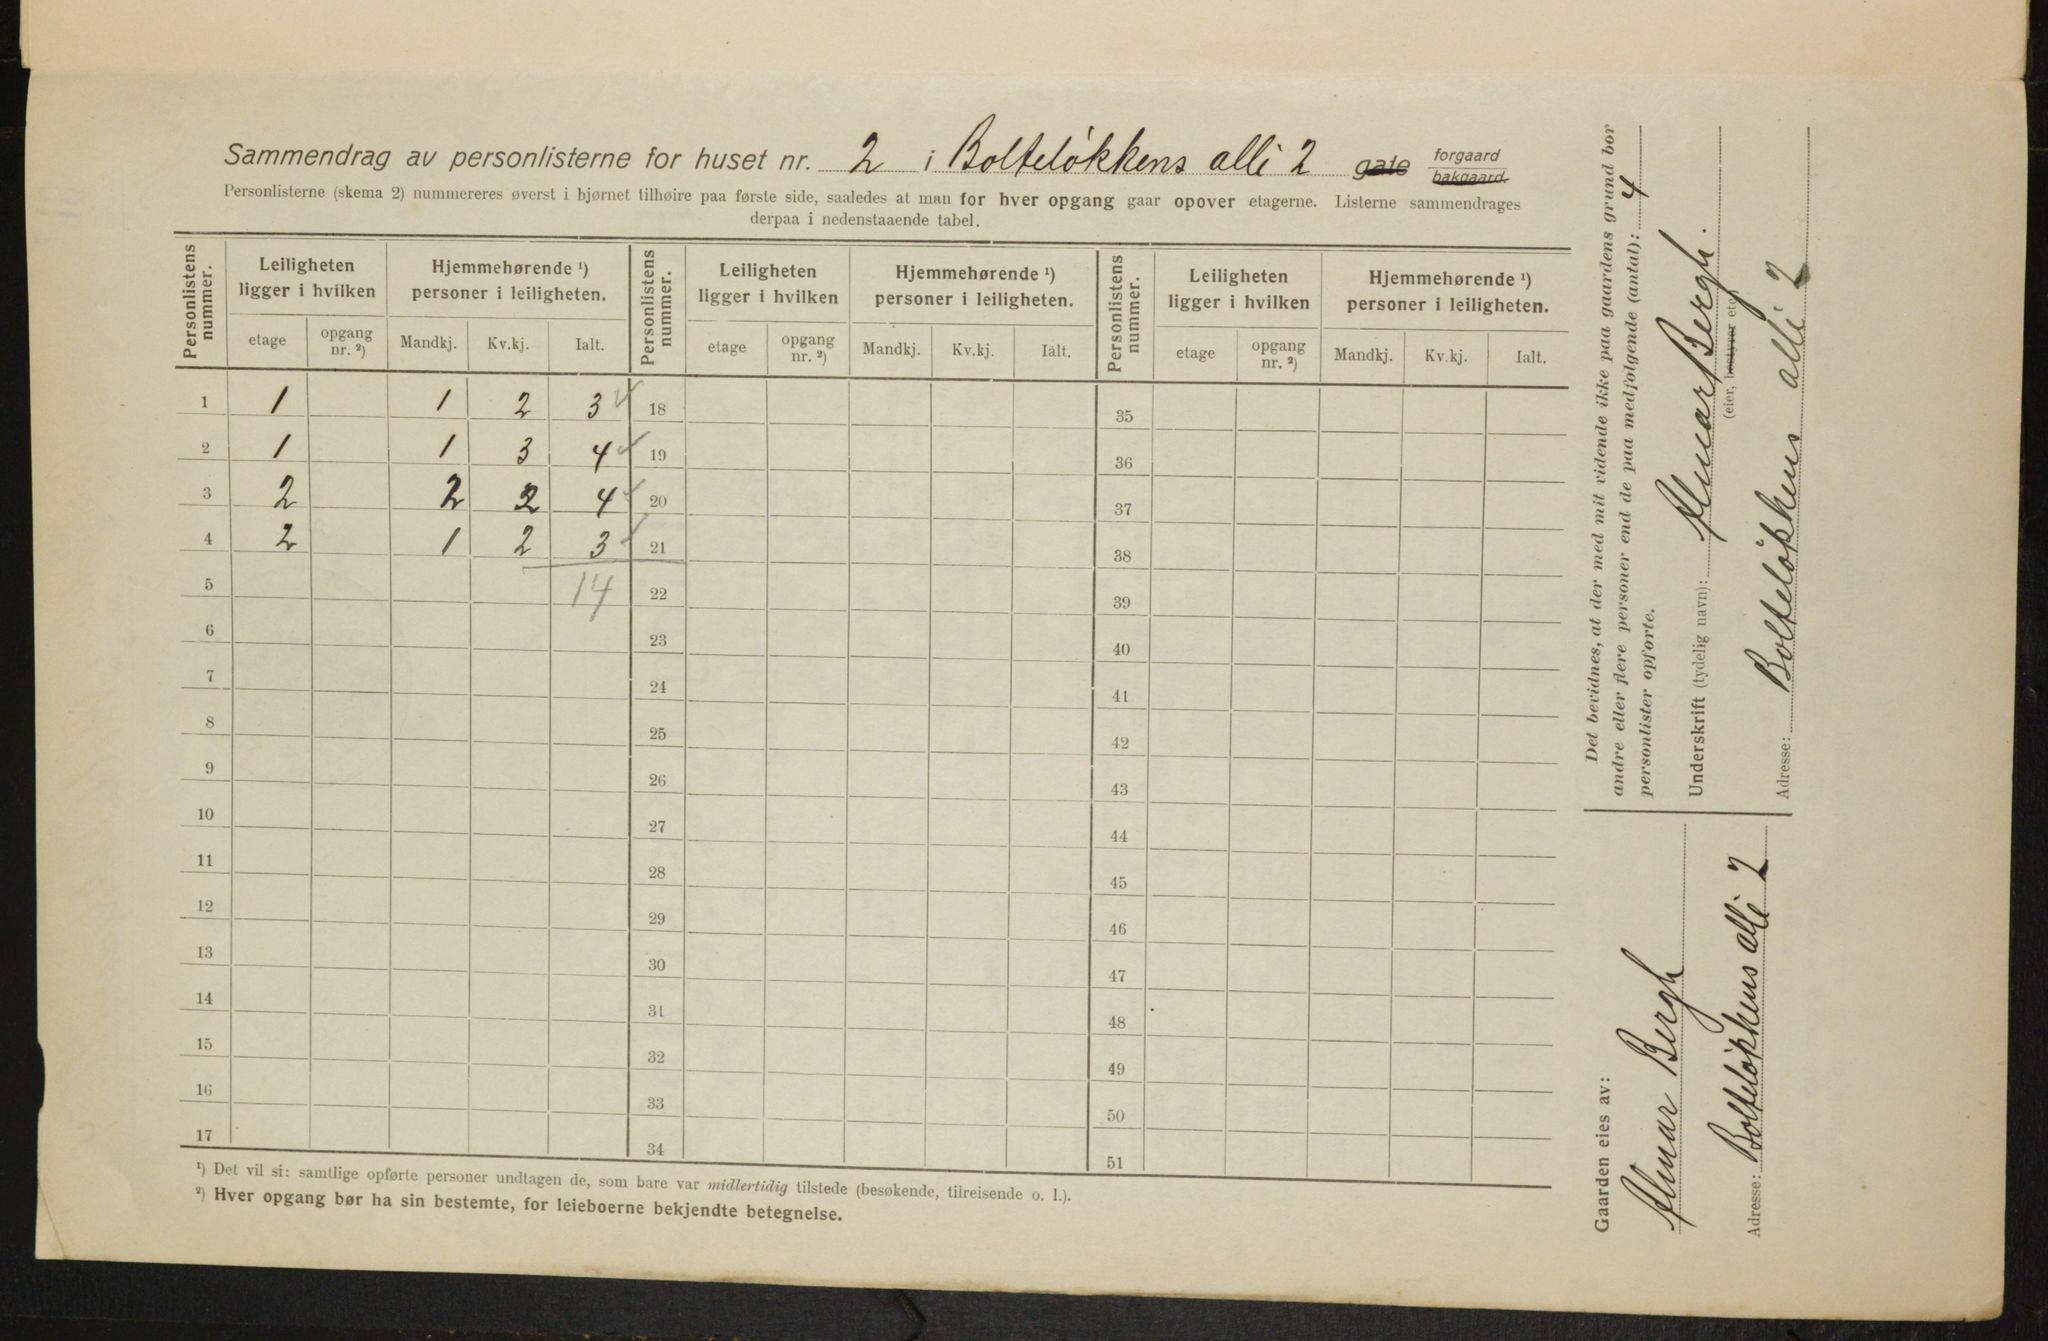 Sammendrag av personlisterne for huset nr. 2 i Bolteløkkens alli 2 gate forgaard bakgaard.
Personlisterne (skema 2) nummereres øverst i hjørnet tilhøire paa første side, saaledes at man for hver opgang gaar opover etagerne. Listerne sammendrages
derpaa i nedenstaaende tabel.
Personlistens nummer. Leiligheten ligger i hvilken Hjemmehørende ¹) personer i leiligheten. Personlistens nummer. Leiligheten ligger i hvilken Hjemmehørende ¹) personer i leiligheten. Personlistens nummer. Leiligheten ligger i hvilken Hjemmehørende ¹) personer i leiligheten.
etage opgang nr. ²) Mandkj. Kv.kj. Ialt. etage opgang nr. ²) Mandkj. Kv.kj. Ialt. etage opgang nr. ²) Mandkj. Kv.kj. Ialt.
1 1 1 2 3 18 35
2 1 1 3 4 19 36
3 2 2 2 4 20 37
4 2 1 2 3 21 38
5 14 22 39
6 23 40
7 24 41
8 25 42
9 26 43
10 27 44
11 28 45
12 29 46
13 30 47
14 31 48
15 32 49
16 33 50
17 34 51
¹) Det vil si: samtlige opførte personer undtagen de, som bare var midlertidig tilstede (besøkende, tilreisende o. l.).
²) Hver opgang bør ha sin bestemte, for leieboerne bekjendte betegnelse.
Det bevidnes, at der med mit vidende ikke paa gaardens grund bor
andre eller flere personer end de paa medfølgende (antal): 4
personlister opførte.
Underskrift (tydelig navn): Bergh.
(eier, bestyrer etc.)
Adresse: Bolteløkkens alli 2
Gaarden eies av:
Bergh
Adresse: Bolteløkkens alli 2